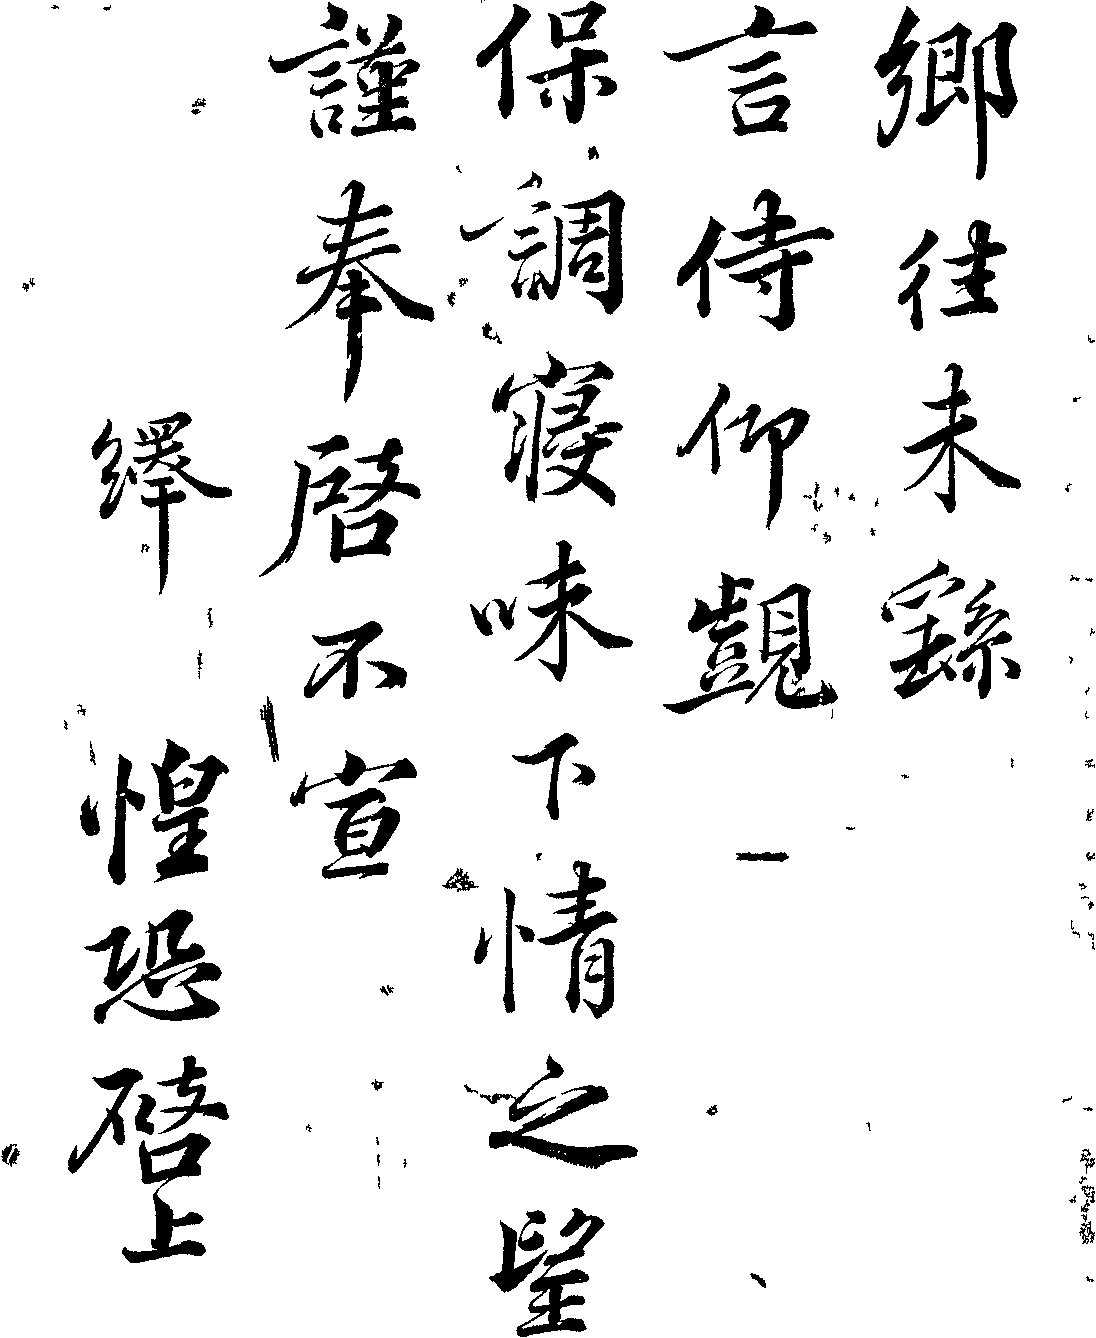 鄉往未繇
言侍仰覬
保調寢味下情之望
謹奉啓不宣
繹 惶恐啓上